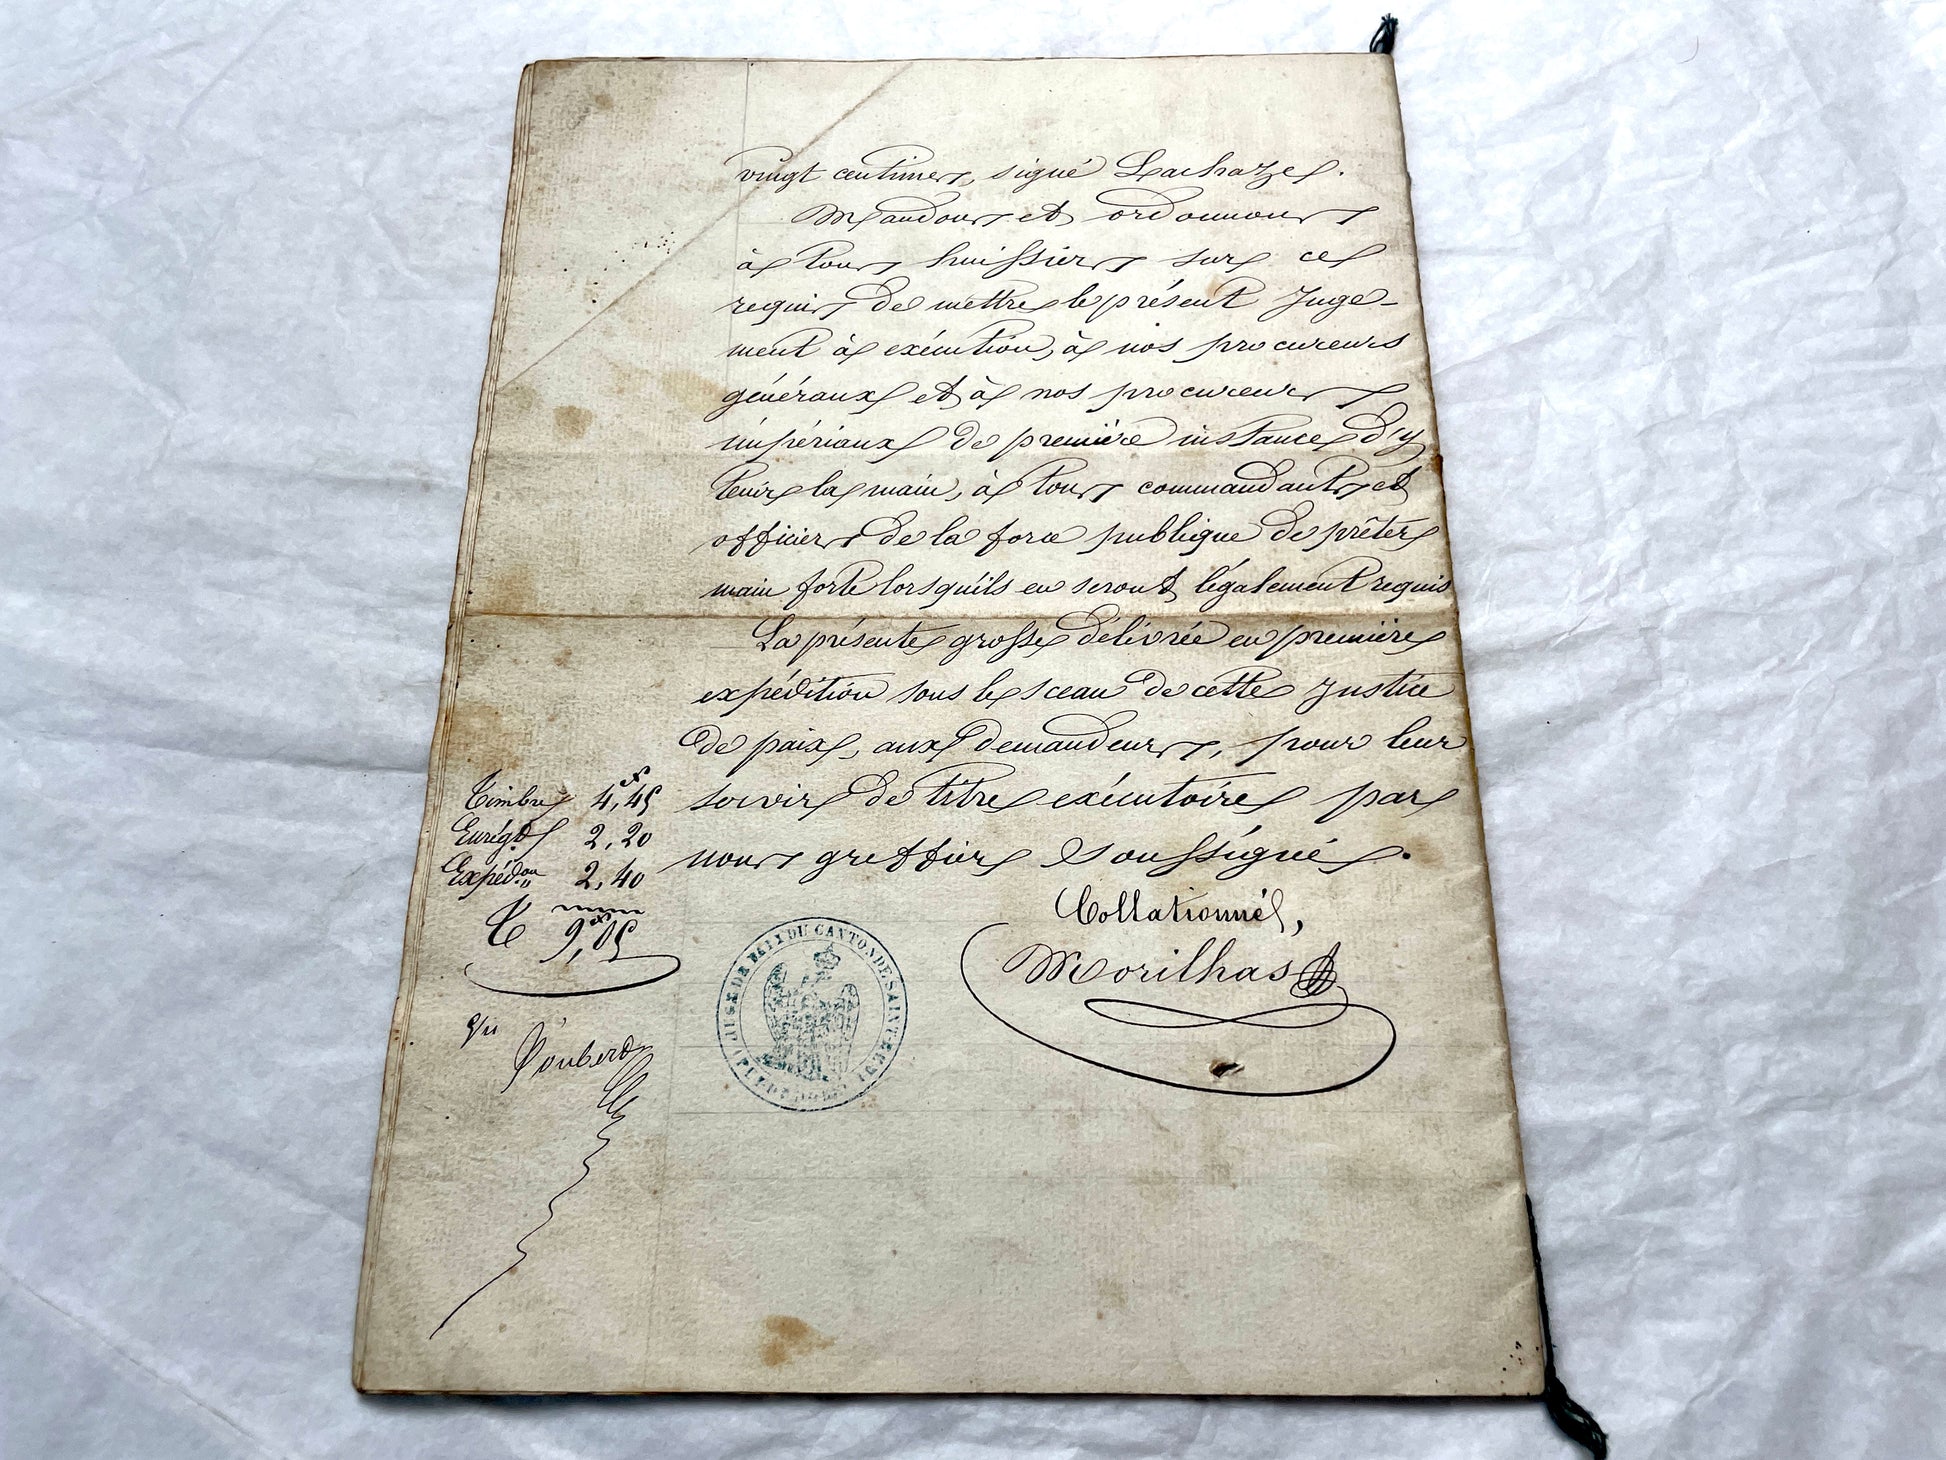 vingt centimes, signé Lachaze.
Mandons et ordonnons
à tous huissiers sur ce
requis de mettre le présent Juge-
ment à exécution, à nos procureurs
généraux et à nos procureurs
impériaux de première instance d'y
tenir la main, à tous commandants et
officiers de la force publique de prêter
main forte lorsqu'ils en seront légalement requis
La présente grosse délivrée en première
expédition sous le sceau de cette Justice
de paix, aux demandeurs, pour leur
servir de titre exécutoire par
nous greffier soussigné.
Collationné,
Morilhas
Timbre 4f,45
Enregt 2,20
Expédon 2,40
T 9f,05
JUGE DE PAIX DU CANTON DE SAINT